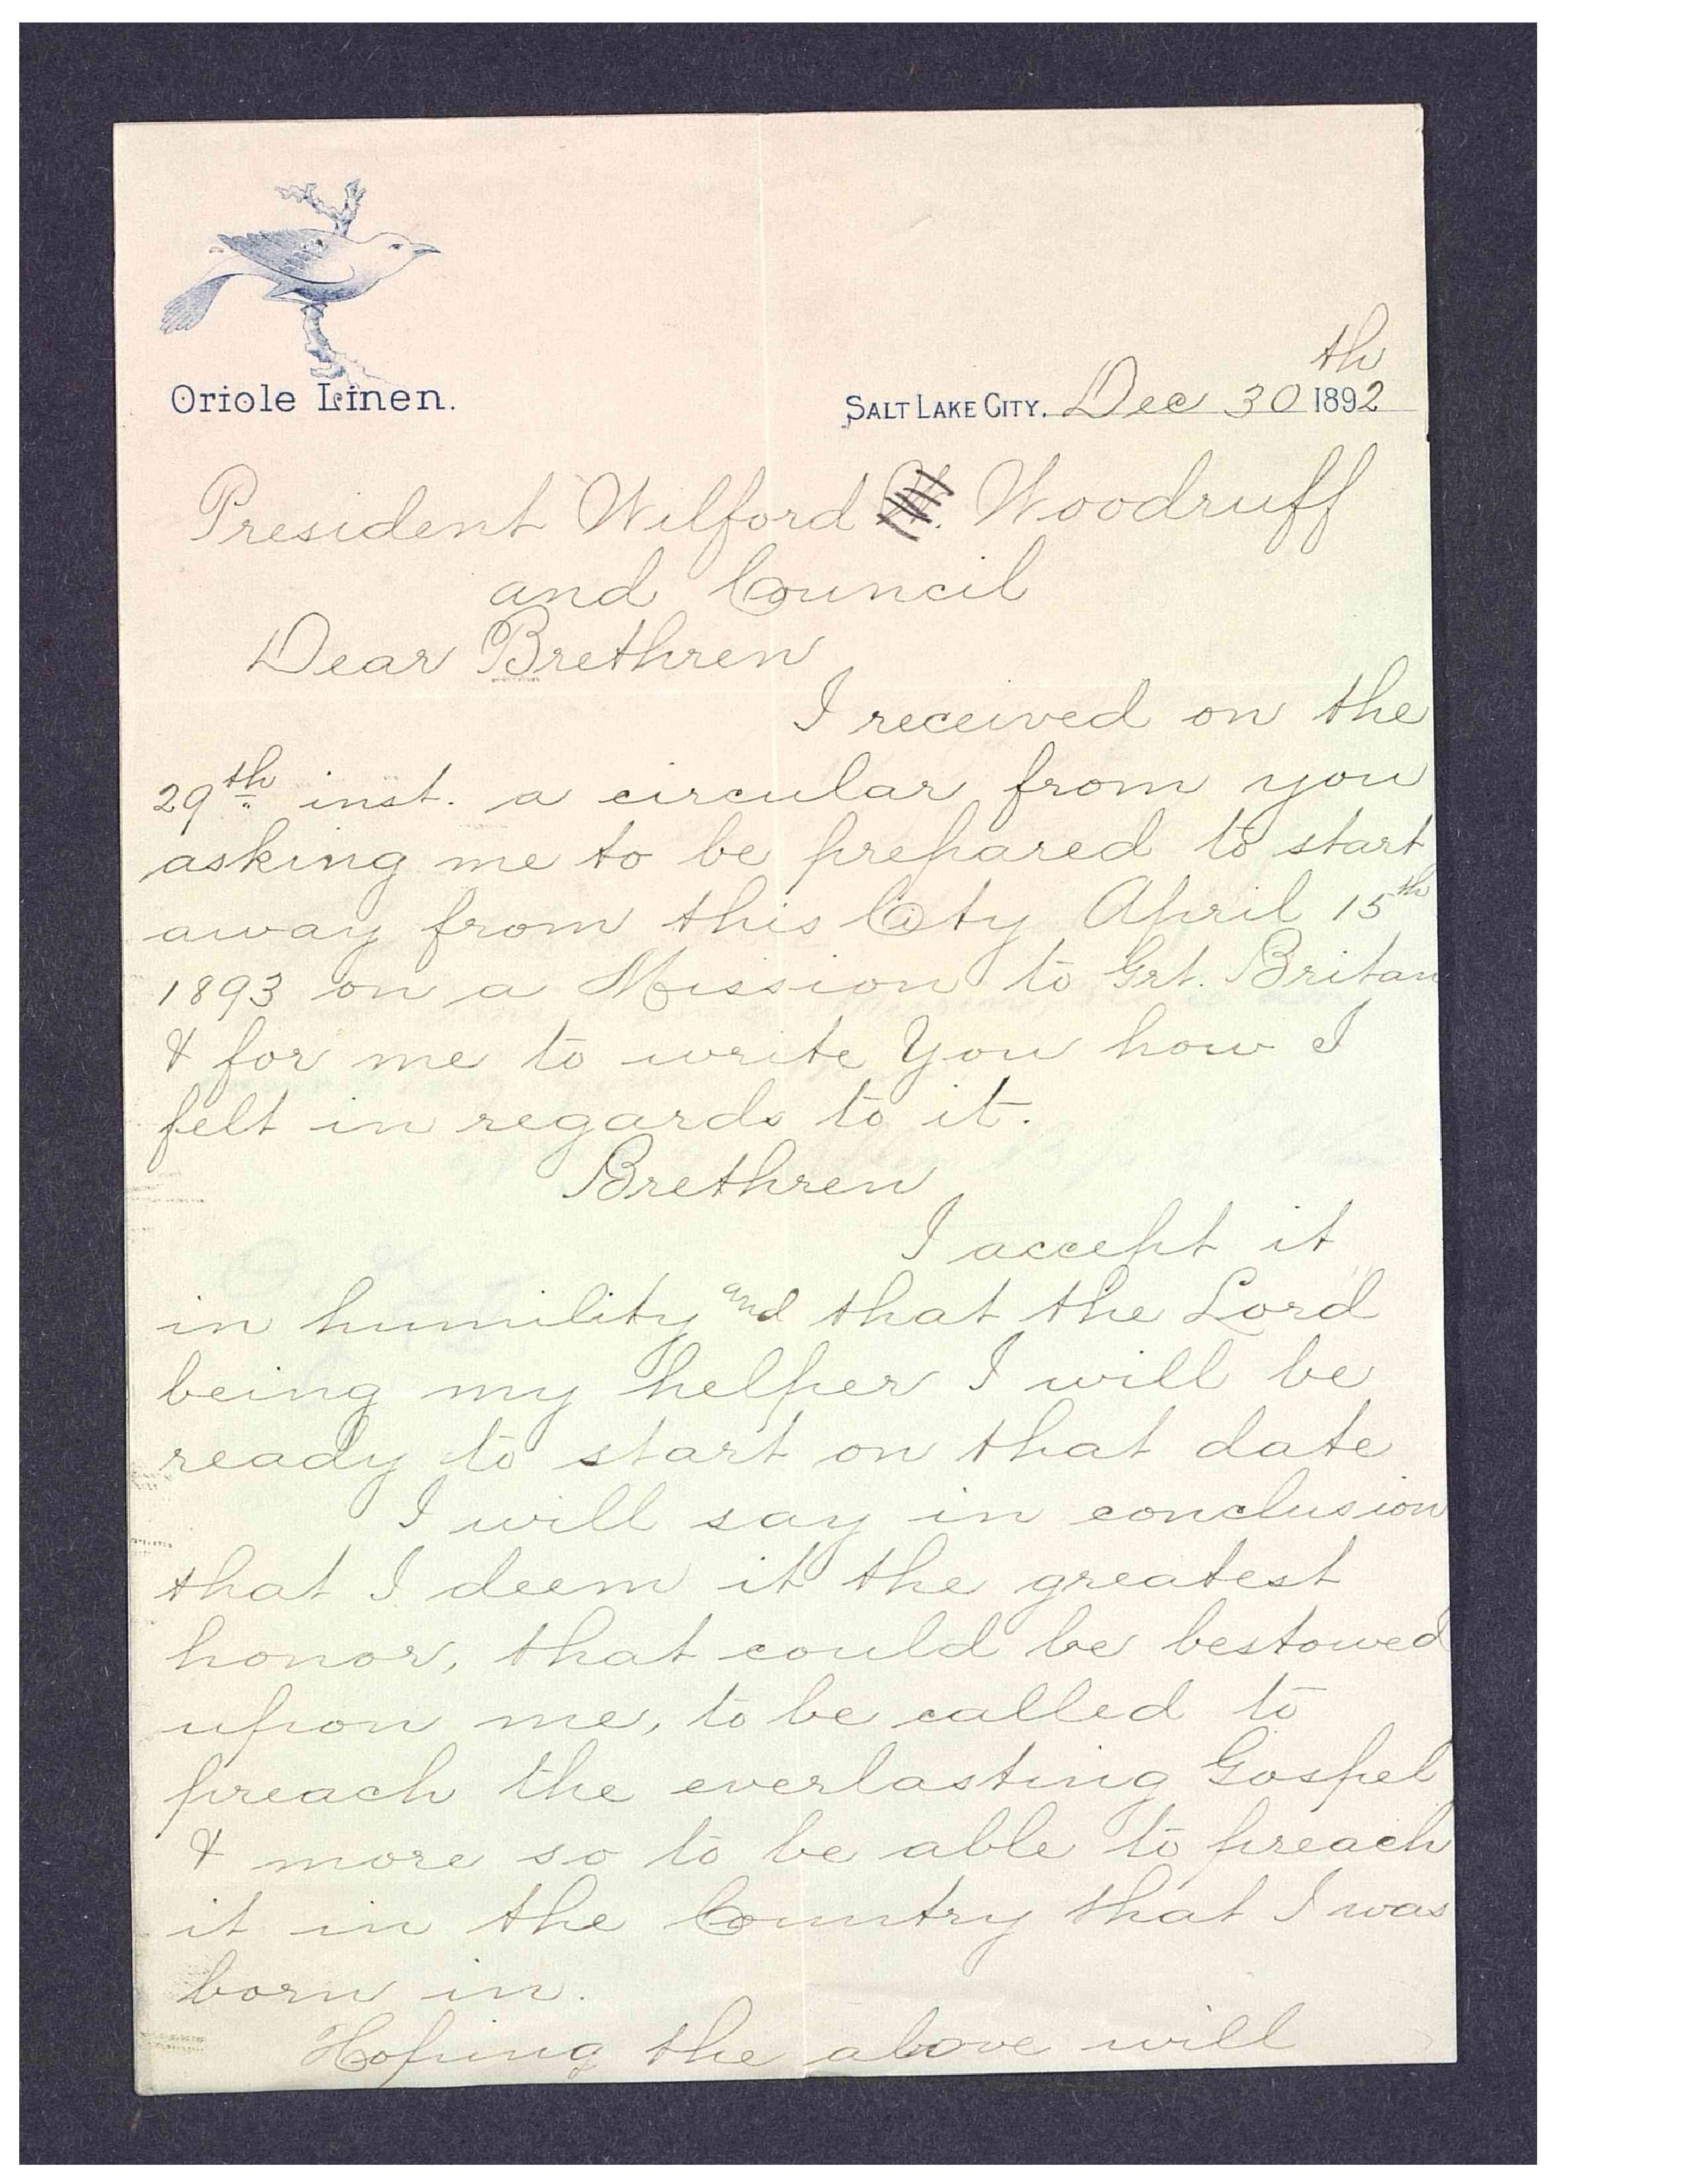 Oriole Linen.
SALT LAKE CITY, Dec 30th 1892
President Wilford Woodruff
and Council
Dear Brethren
I received on the
29th inst. a circular from you
asking me to be prepared to start
away from this City April 15th
1893 on a Mission to Grt. Britan
& for me to write You how I
felt in regards to it.
Brethren
I accept it
in humility and that the Lord
being my helper I will be
ready to start on that date
I will say in conclusion
that I deem it the greatest
honor, that could be bestowed
upon me, to be called to
preach the everlasting Gospel
& more so to be able to preach
it in the Country that I was
born in.
Hoping the above will